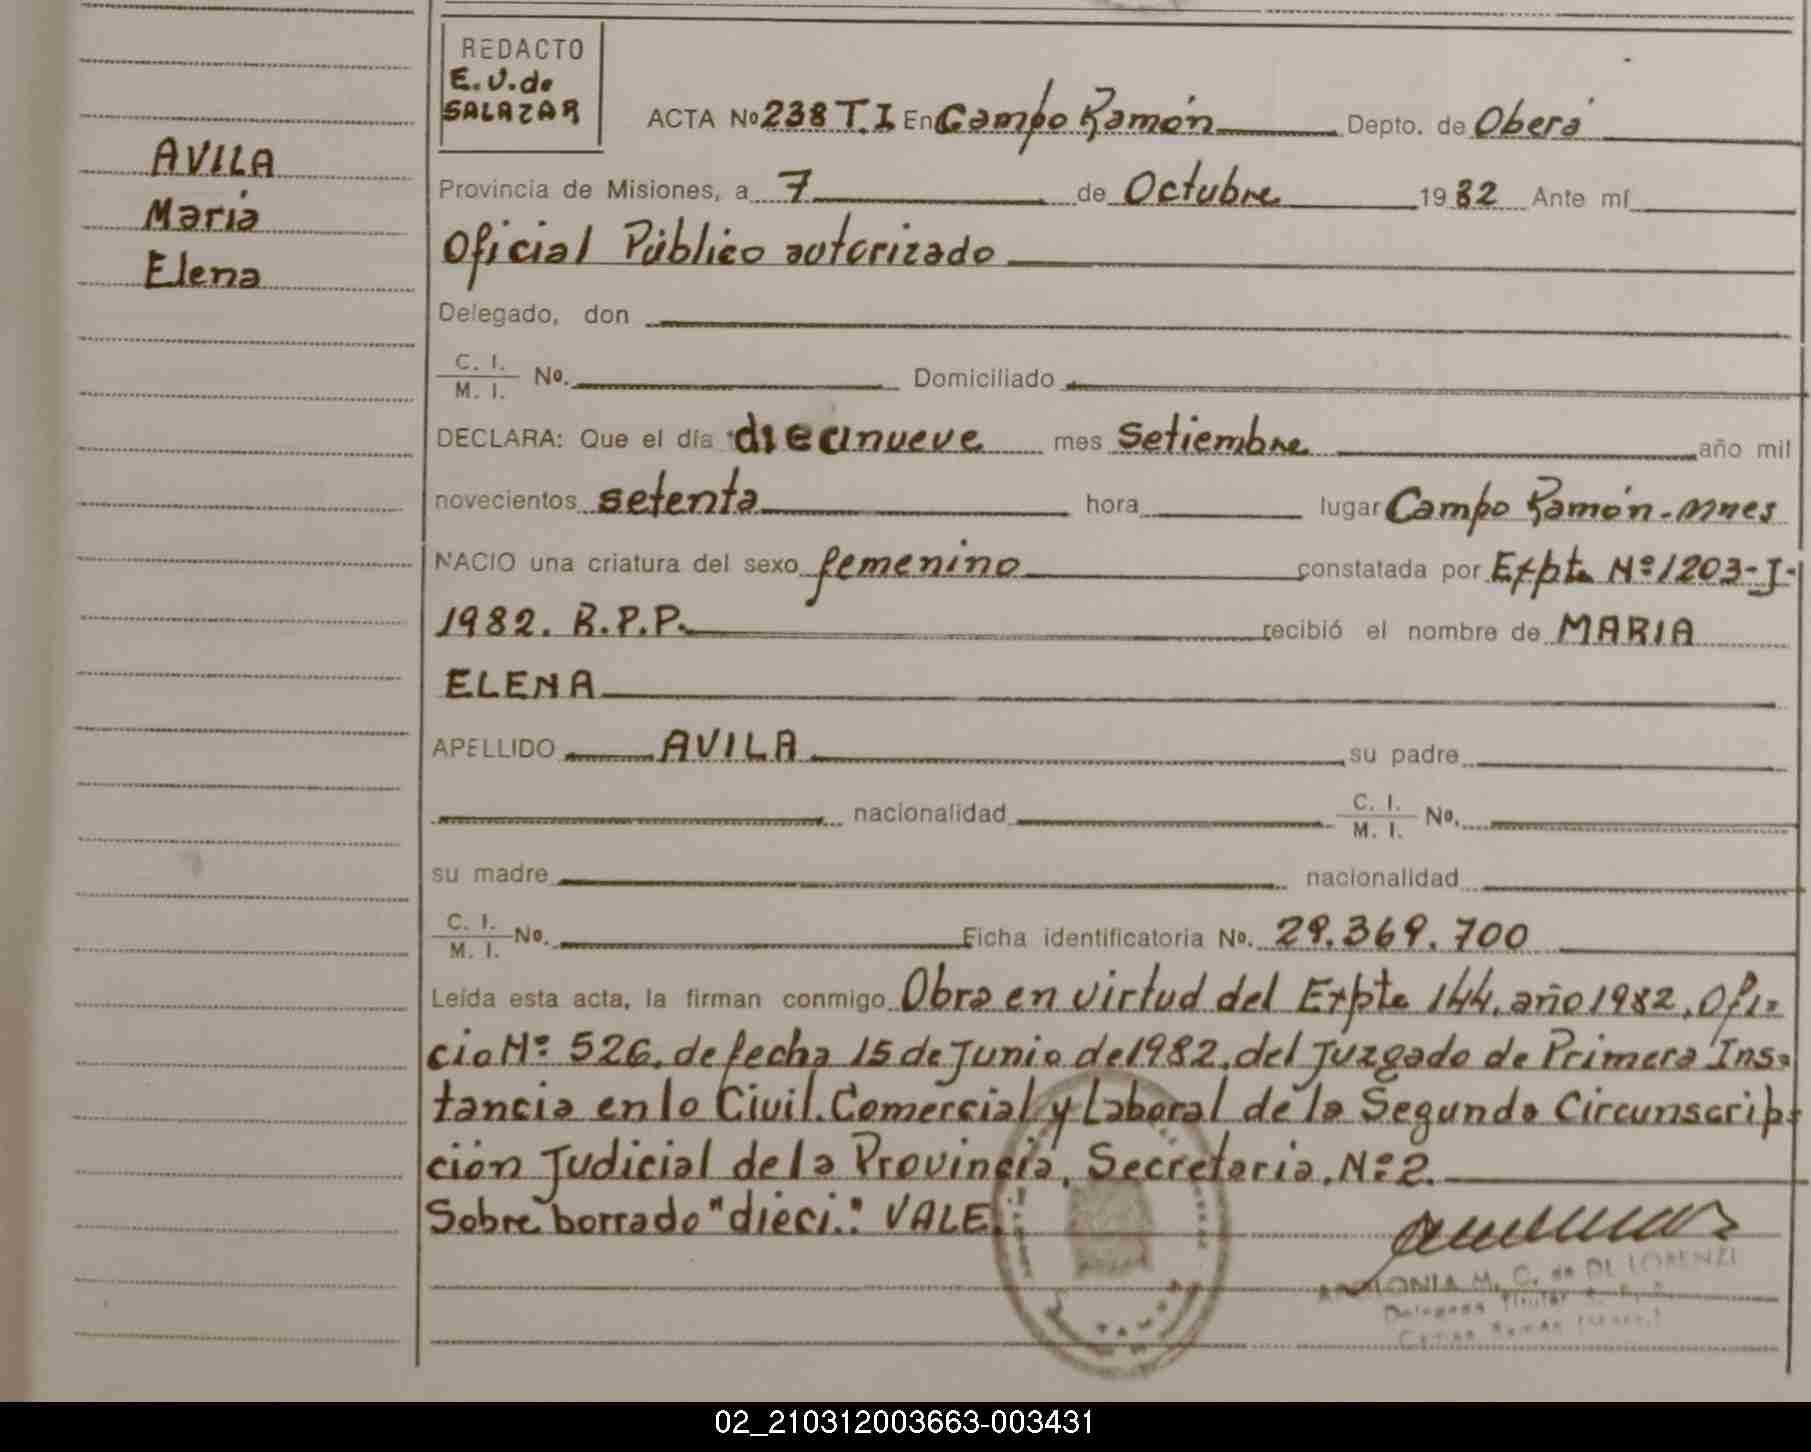 REDACTO
E.V. de
SALAZAR
ACTA Nº 238 T.I En Campo Ramón Depto. de Oberá
AVILA
Maria
Elena
Provincia de Misiones, a 7 de Octubre 1982 Ante mí
Oficial Público autorizado
Delegado, don
C. I.
M. I. Nº. Domiciliado
DECLARA: Que el día diecinueve mes Setiembre año mil
novecientos setenta hora lugar Campo Ramón-Mnes
NACIO una criatura del sexo femenino constatada por Expte Nº 1203-J-
1982. R.P.P. recibió el nombre de MARIA
ELENA
APELLIDO AVILA su padre
nacionalidad C. I.
M. I. Nº.
su madre nacionalidad
C. I.
M. I. Nº. Ficha identificatoria Nº. 29.369.700
Leída esta acta, la firman conmigo Obra en virtud del Expte 144, año 1982, Ofi=
cio Nº 526, de fecha 15 de Junio de 1982, del Juzgado de Primera Ins=
tancia en lo Civil. Comercial y Laboral de la Segunda Circunscrip=
ción Judicial de la Provincia, Secretaria. Nº 2.
Sobre borrado "dieci": VALE.
M. C. de DI LORENZI
02_210312003663-003431